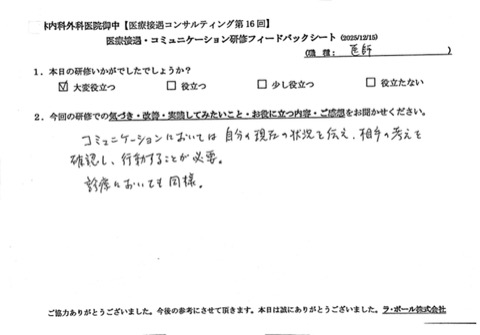 林内科外科医院御中【医療接遇コンサルティング第16回】
医療接遇・コミュニケーション研修フィードバックシート (2025/12/15)
（職 種： 医師 ）
1．本日の研修いかがでしたでしょうか？
☑ 大変役立つ □ 役立つ □ 少し役立つ □ 役立たない
2．今回の研修での気づき・改善・実践してみたいこと・お役に立つ内容・ご感想をお聞かせください。
コミュニケーションにおいては自分の現在の状況を伝え、相手の考えを
確認し、行動することが必要。
診療においても同様。
ご協力ありがとうございました。今後の参考にさせて頂きます。本日は誠にありがとうございました。ラ・ポール株式会社